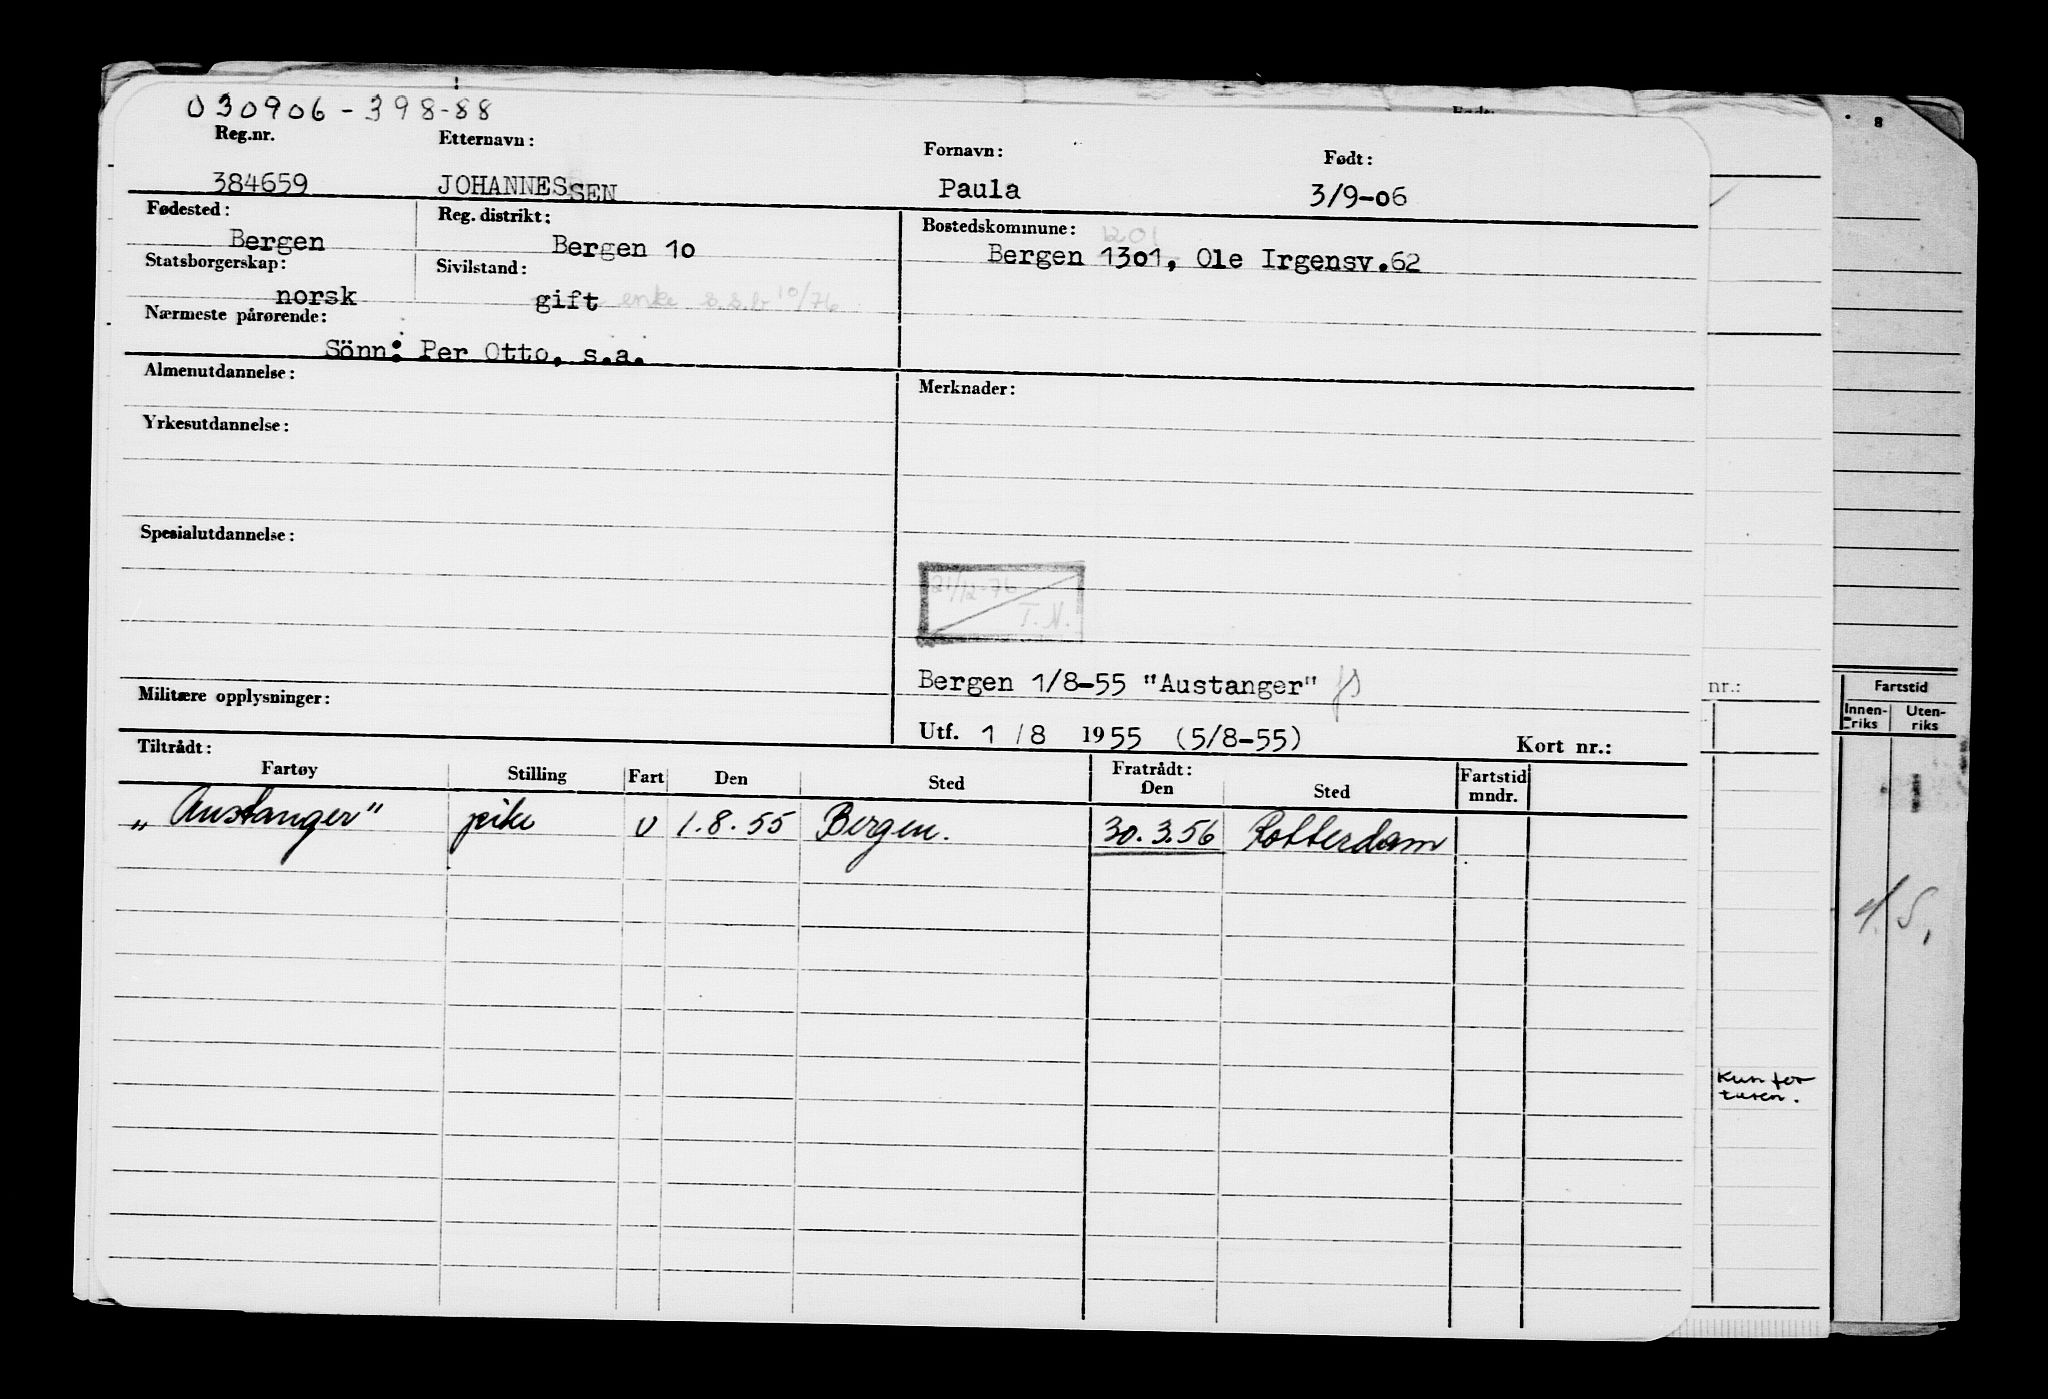 030906-398-88
Reg.nr. Etternavn: Fornavn: Født:
384659 JOHANNESSEN Paula 3/9-06
Fødested: Reg. distrikt: Bostedskommune: 1201
Bergen Bergen 10 Bergen 1301, Ole Irgensv.62
Statsborgerskap: Sivilstand:
norsk gift enke 10/76
Nærmeste pårørende:
Sönn: Per Otto, s.a.
Almenutdannelse: Merknader:
Yrkesutdannelse:
Spesialutdannelse:
21/12-76
T.N.
Bergen 1/8-55 "Austanger"
Militære opplysninger:
Utf. 1/8 1955 (5/8-55) Kort nr.:
Tiltrådt: Fratrådt:
Fartøy Stilling Fart Den Sted Den Sted Fartstid mndr.
„Austanger" pike U 1.8.55 Bergen. 30.3.56 Rotterdam
8
nr.:
Fartstid
Innen-riks Uten-riks
Kun for
turen.